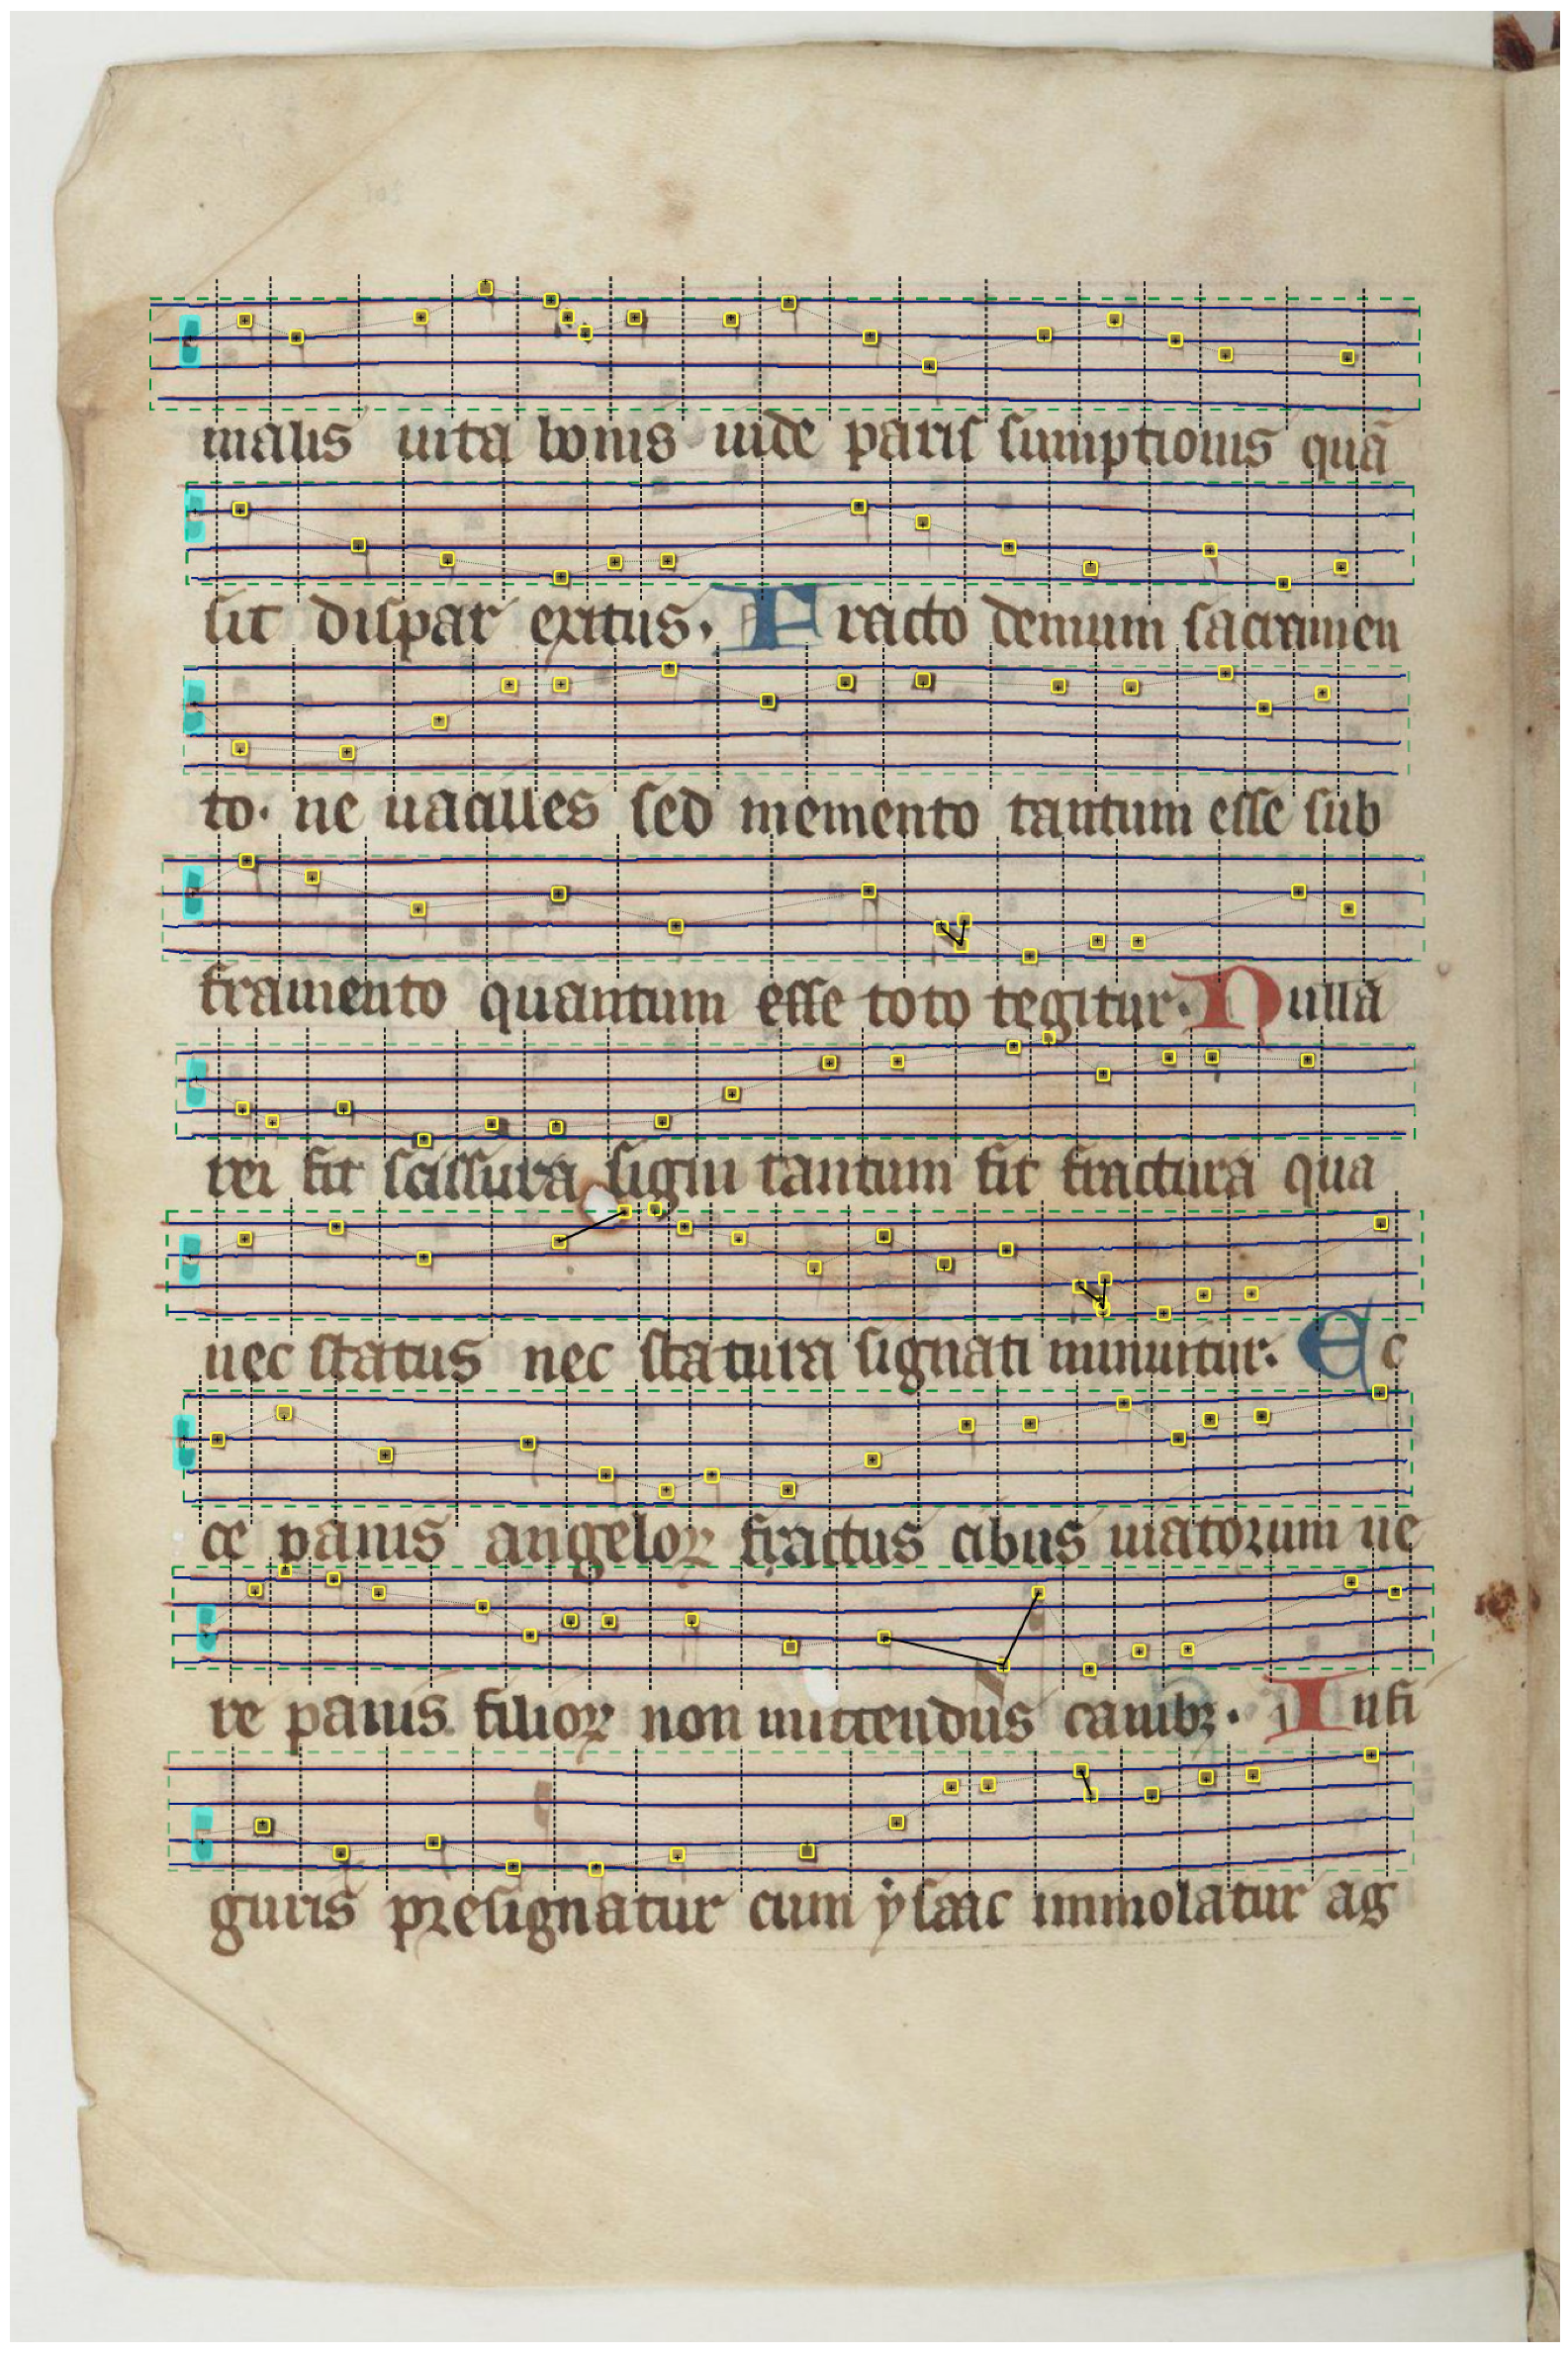 malis uita bonis uide paris sumptionis quā
sit dispar exitus. Fracto demum sacramen
to. ne uacilles sed memento tantum esse sub
fragmento quantum esse toto tegitur. Nulla
rei fit scissura signi tantum fit fractura qua
nec status nec statura signati minuitur. Ec
ce panis angeloꝝ fractus cibus uiatorum ue
re panis filioꝝ non mittendus canibꝫ. In fi
guris presignatur cum ẏsaac immolatur ag